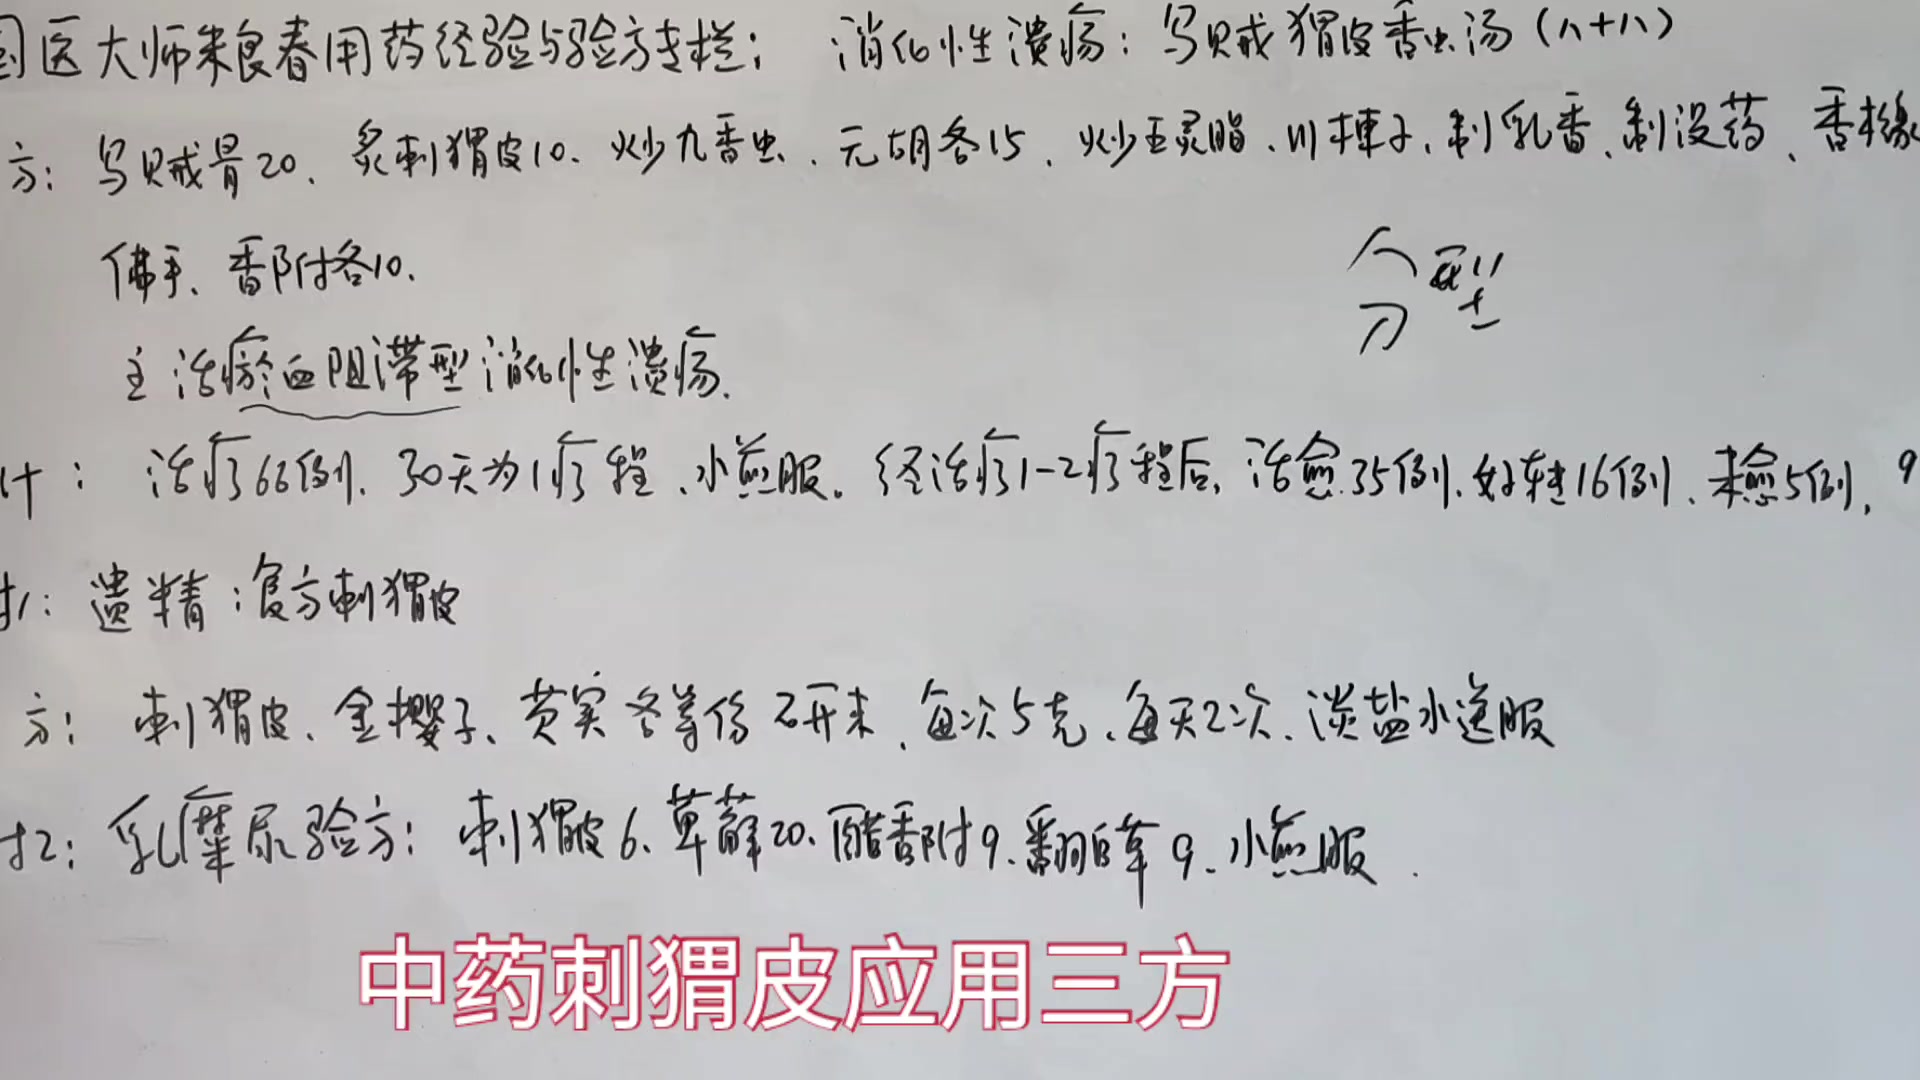 国医大师朱良春用药经验与验方专栏: 消化性溃疡:乌贼猬皮香虫汤(八十八)
方:乌贼骨20、炙刺猬皮10、炒九香虫、元胡各15、炒五灵脂、川楝子、制乳香、制没药、香橼
佛手、香附各10.
分型
主治瘀血阻滞型消化性溃疡.
计:治疗66例、30天为1疗程、水煎服。经治疗1-2疗程后,治愈35例、好转16例、未愈5例,
1:遗精:复方刺猬皮
方:刺猬皮、金樱子、芡实各等份研末、每次5克、每天2次、淡盐水送服
2:乳糜尿验方:刺猬皮6、萆薢20、醋香附9、翻白草9、水煎服.
中药刺猬皮应用三方